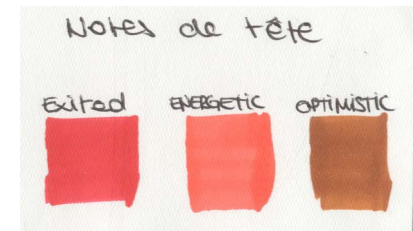 Notes de tête
Exited ENERGETIC OPTIMISTIC